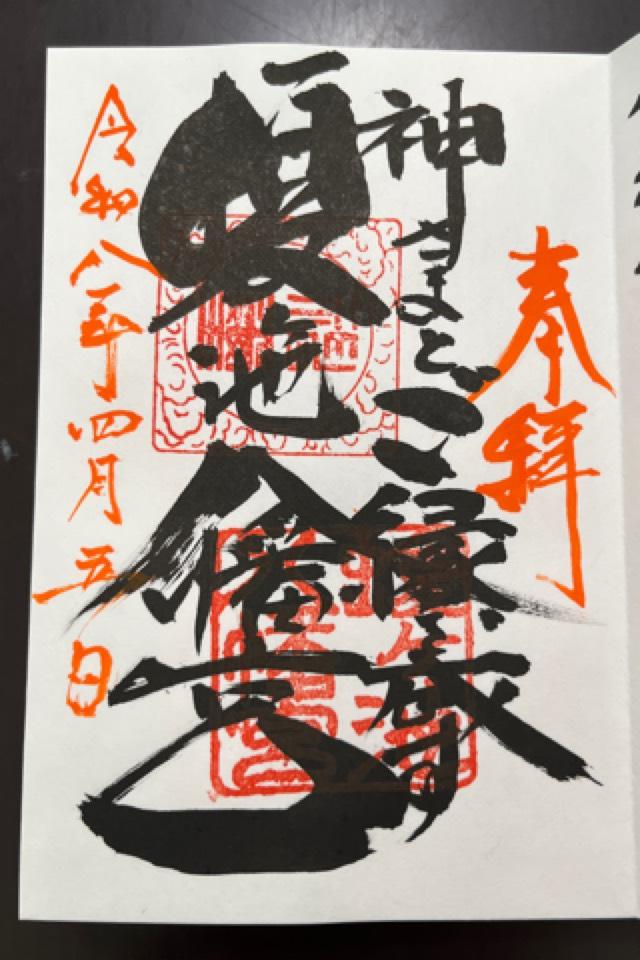 奉拝
神さまとご縁
蝮ヶ池八幡宮
令和八年四月五日